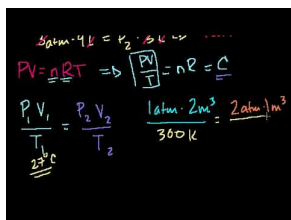 3atm · 4L = P₂ · 3L
PV = nRT ⇒ PV/T = nR = C
P₁V₁/T₁ = P₂V₂/T₂
1atm · 2m³/300K = 2atm · 1m³
27°C